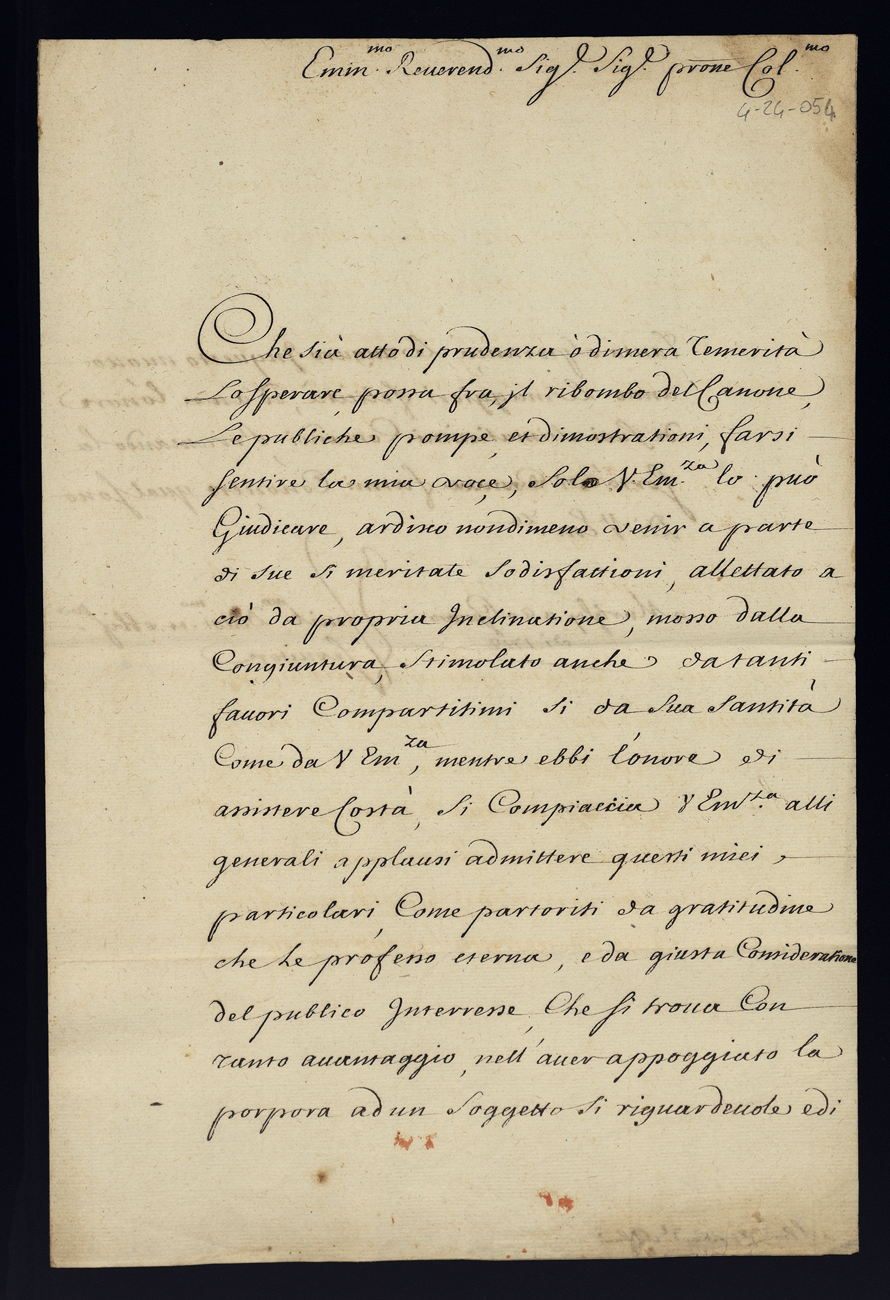 Emin.mo Reuerend.mo Sig.r Sig.r prōne Col.mo
4-24-054
Che sià atto di prudenza ò di mera Temerità
Lo sperare, possa fra, jl ribombo del Canone,
Le publiche pompe, et dimostrationi, farsi
sentire la mia voce, Solo V. Em.za lo può
Giudicare, ardisco nondimeno venir a parte
di sue si meritate sodisfattioni, allettato a
ciò da propria Inclinatione, mosso dalla
Congiuntura, stimolato anche da tanti
fauori Compartitimi si da Sua Santità
Come da V Em.za, mentre ebbi l'onore di
assistere Costà, si Compiaccia V Em.za alli
generali applausi admittere questi miei,
particolari, Come partoriti da gratitudine
che le professo eterna, e da giusta Consideratione
del publico Interresse, Che si troua Con
tanto auantaggio, nell'auer appoggiato la
porpora ad un soggetto si riguardeuole e di